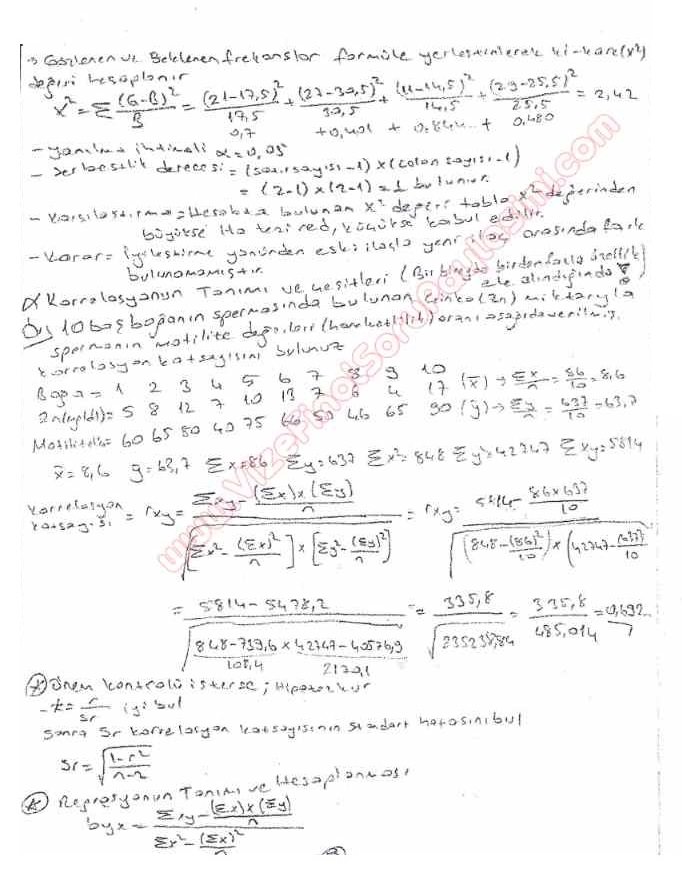 → Gözlenen ve Beklenen frekanslar formüle yerleştirilerek ki-kare(x²)
değeri hesaplanır
x² = Σ (G-B)²/B = (21-17,5)²/17,5 + (27-30,5)²/30,5 + (11-14,5)²/14,5 + (29-25,5)²/25,5 = 2,42
0,7 + 0,401 + 0,844.. + 0,480
- yanılma ihtimali α = 0,05
- Serbestlik derecesi = (satır sayısı-1) x (colon sayısı-1)
= (2-1) x (2-1) = 1 bulunur
- Karşılaştırma = Hesabta bulunan x² değeri tablo x² değerinden
büyükse Ho tezi red, küçükse kabul edilir.
- Karar = İyileştirme yönünden eski ilaçla yeni ilaç arasında fark
bulunamamıştır
Korrelasyonun Tanımı ve Çeşitleri (Bir bireyde birden fazla özellik
ele alındığında
Ör; 10 baş boğanın spermasında bulunan Çinko (Zn) miktarıyla
spermanın motilite değerleri (hareketlilik) oranı aşağıda verilmiş.
Korrelasyon katsayısını bulunuz
Boğa = 1 2 3 4 5 6 7 8 9 10
5 8 12 7 10 13 7 6 4 17 (x̄) → Σx/n = 86/10 = 8,6
60 65 80 40 75 66 50 46 65 90 (ȳ) → Σy/n = 637/10 = 63,7
x̄ = 8,6 ȳ = 63,7 Σx = 86 Σy = 637 Σx² = 848 Σy² = 42747 Σxy = 5814
Korrelasyon katsayısı = rxy = (Σxy - (Σx)x(Σy)/n) / √([Σx² - (Σx)²/n] x [Σy² - (Σy)²/n]) = rxy = (5814 - 86x637/10) / √((848 - (86)²/10) x (42747 - (637)²/10))
= (5814 - 5478,2) / √(848-739,6 x 42747-40576,9) = 335,8 / √235238,84 = 335,8 / 485,014 = 0,692
108,4 2170,1
Önem kontrolü isterse; Hipotez kur
- t = r/Sr iyi bul
sonra Sr korrelasyon katsayısının standart hatasını bul
Sr = √((1-r²)/(n-2))
Regresyonun Tanımı ve Hesaplanması
byx = (Σxy - (Σx)x(Σy)/n) / (Σx² - (Σx)²/n)
www.VizeFinalSoruPaylasimi.com